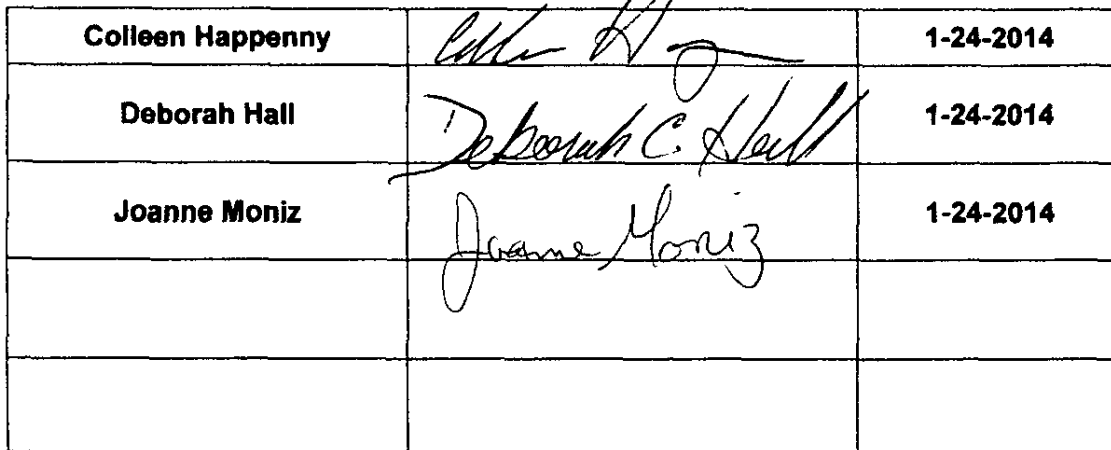 Colleen Happenny 1-24-2014
Deborah Hall Deborah C. Hall 1-24-2014
Joanne Moniz Joanne Moniz 1-24-2014